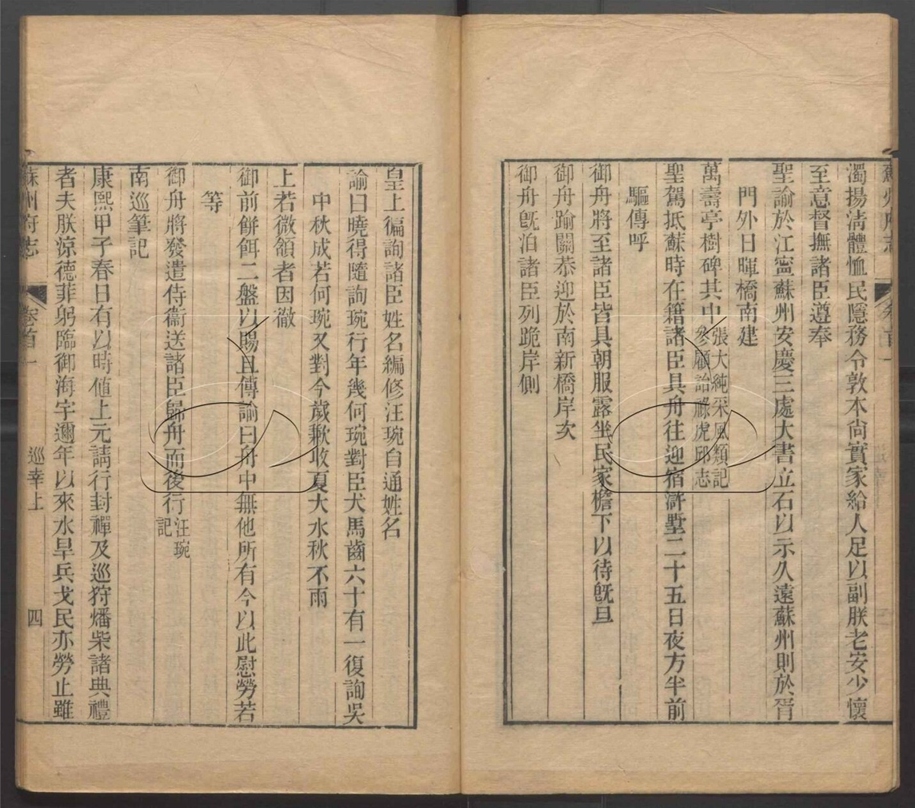 濁揚淸體恤民隱務令敦本尙實家給人足以副朕老安少懷
至意督撫諸臣遵奉
聖諭於江寧蘇州安慶三處大書立石以示久遠蘇州則於胥
門外日暉橋南建
萬壽亭樹碑其中張大純采風類記
參顧詒祿虎邱志
聖駕抵蘇時在籍諸臣具舟往迎宿滸墅二十五日夜方半前
驅傳呼
御舟將至諸臣皆具朝服露坐民家檐下以待旣旦
御舟踰關恭迎於南新橋岸次
御舟旣泊諸臣列跪岸側
皇上徧詢諸臣姓名編修汪琬自通姓名
諭曰曉得隨詢琬行年幾何琬對臣犬馬齒六十有一復詢吳
中秋成若何琬又對今歲歉收夏大水秋不雨
上若微頷者因徹
御前餅餌二盤以賜且傳諭曰舟中無他所有今以此慰勞若
等
御舟將發遣侍衞送諸臣歸舟而後行汪琬
記
南巡筆記
康熙甲子春日有以時値上元請行封禪及巡狩燔柴諸典禮
者夫朕涼德菲躬臨御海宇邇年以來水旱兵戈民亦勞止雖
蘇州府志
卷首一
巡幸上
四